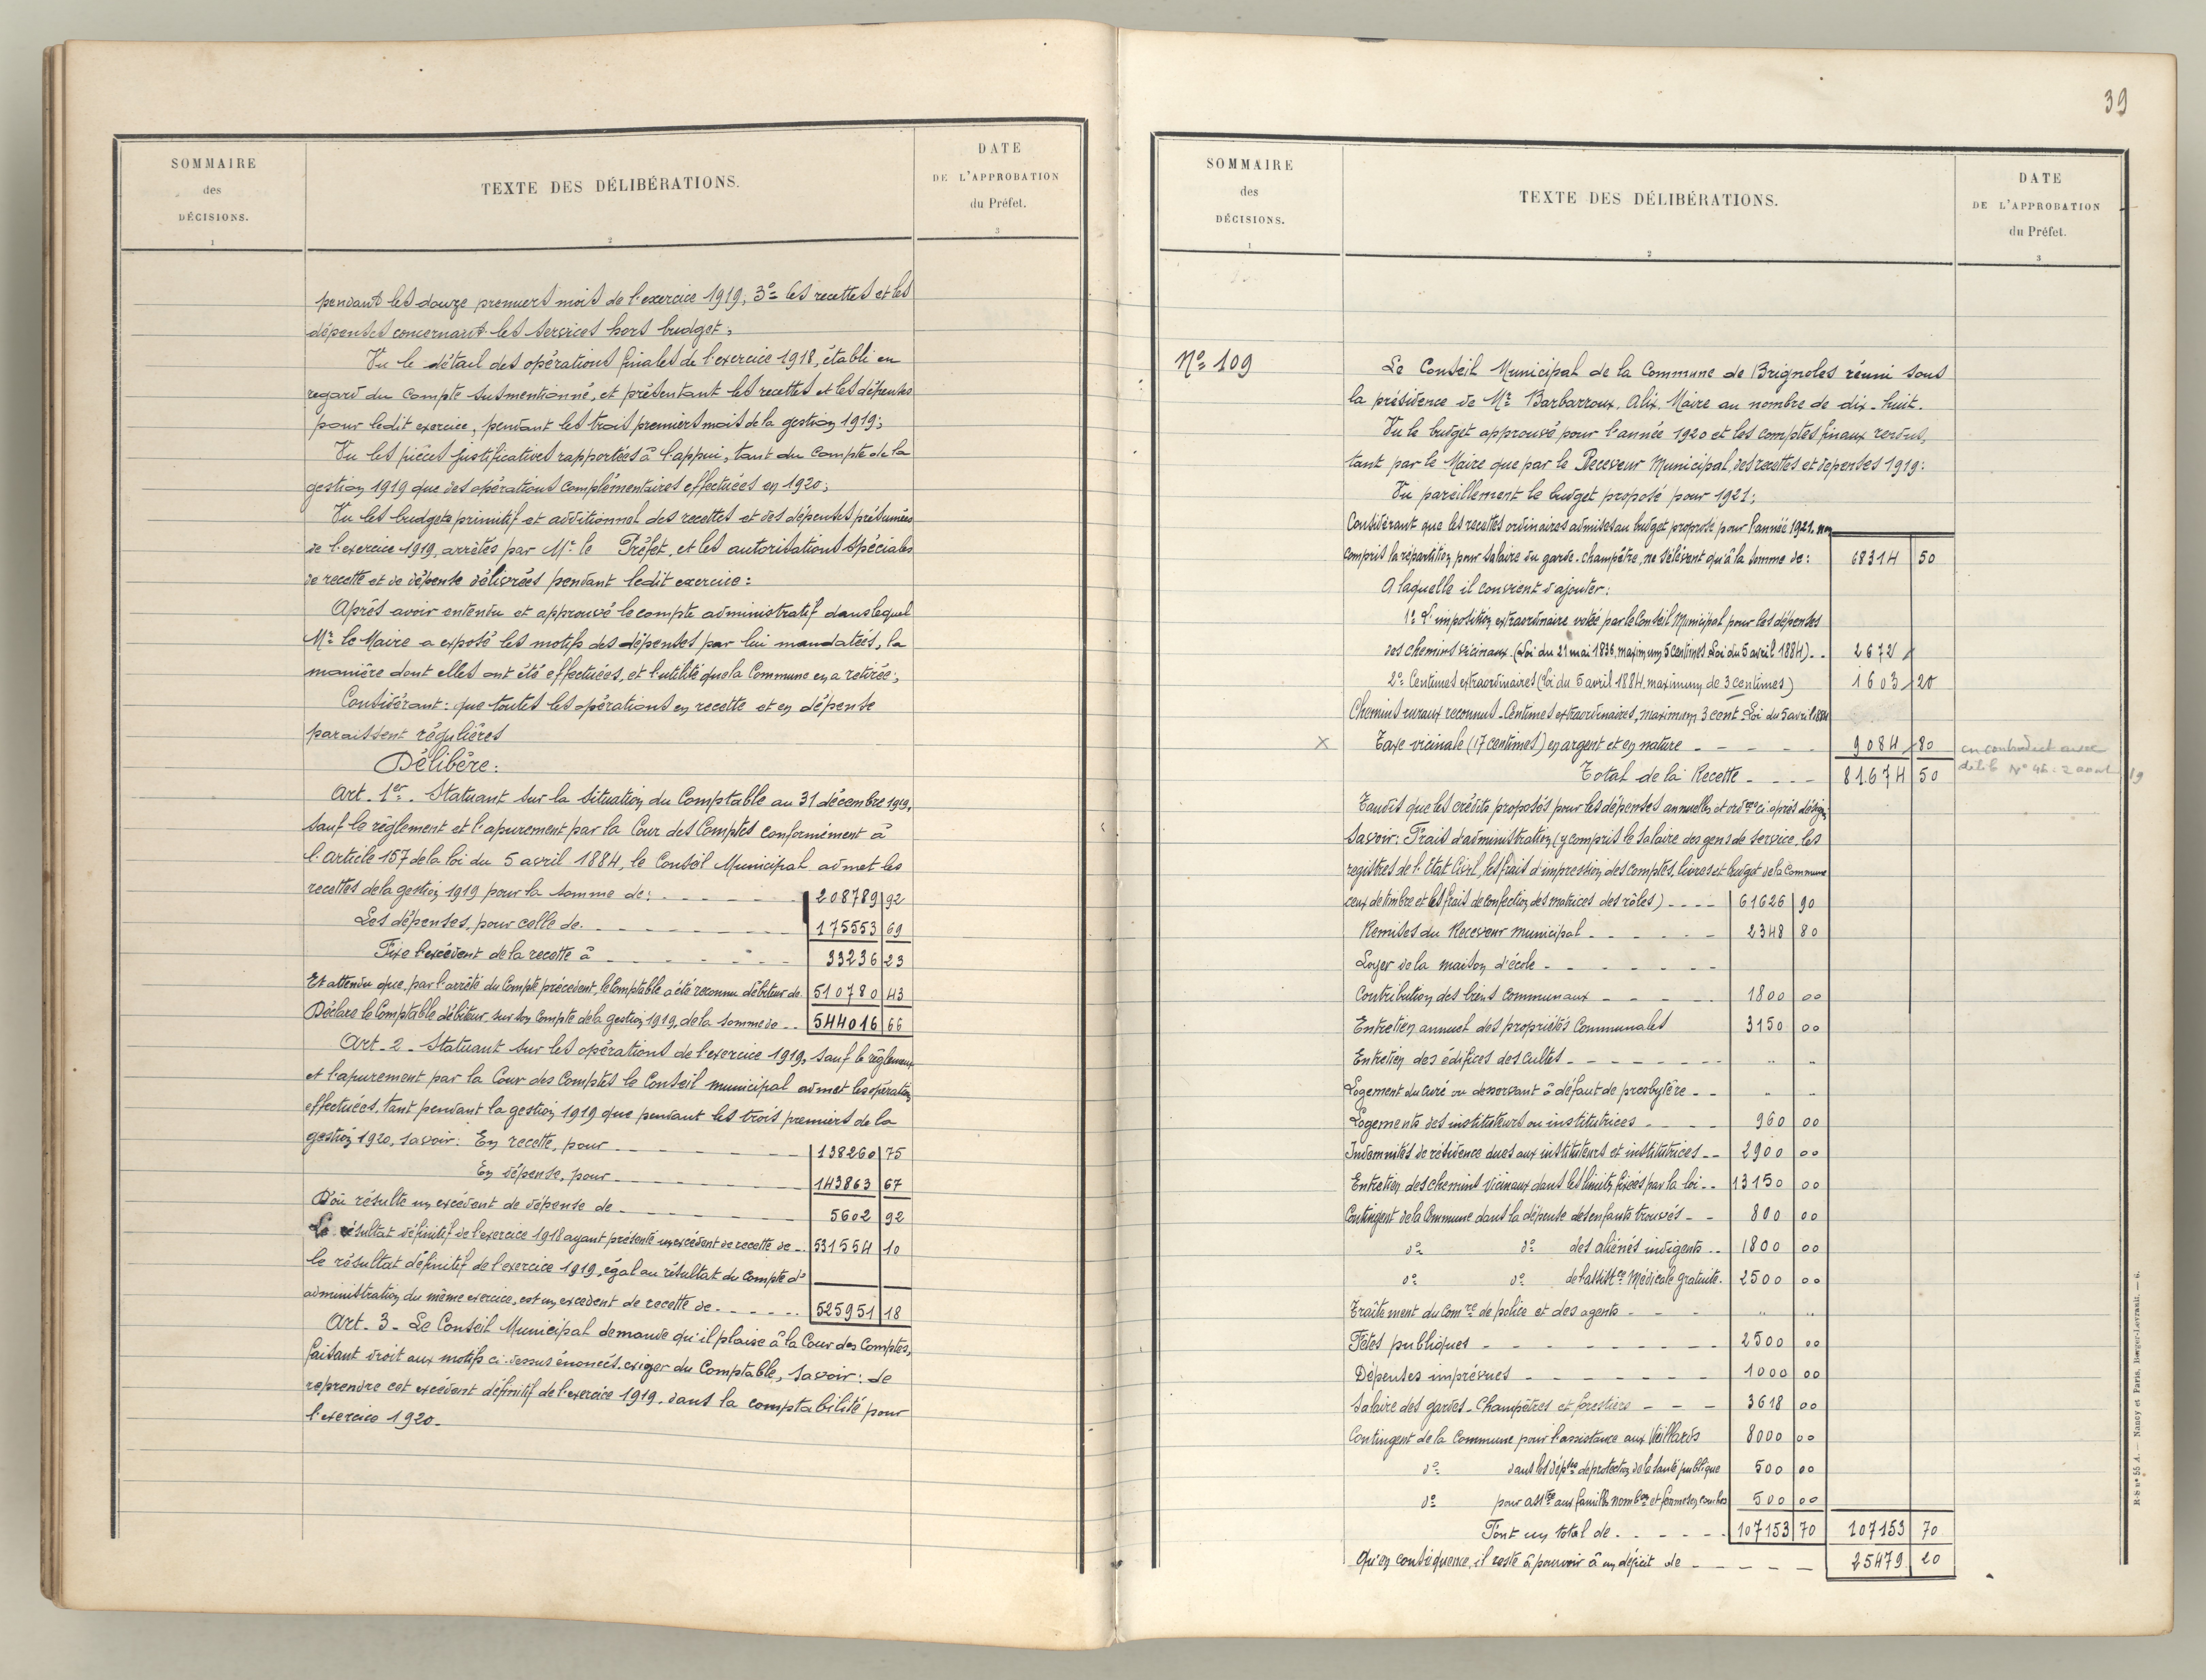 SOMMAIRE
des
DÉCISIONS.
1
TEXTE DES DÉLIBÉRATIONS.
2
DATE
DE L'APPROBATION
du Préfet.
3
pendant les douze premiers mois de l'exercice 1919, 3º les recettes et les
dépenses concernant les services hors budget;
Vu le détail des opérations finales de l'exercice 1918, établi en
regard du compte susmentionné, et présentant les recettes et les dépenses
pour ledit exercice, pendant les trois premiers mois de la gestion 1919;
Vu les pièces justificatives rapportées à l'appui, tant du compte de la
gestion 1919 que des opérations complémentaires effectuées en 1920;
Vu les budgets primitif et additionnel des recettes et des dépenses présumées
de l'exercice 1919, arrêtés par Mr le Préfet, et les autorisations spéciales
de recette et de dépense délivrées pendant ledit exercice:
Après avoir entendu et approuvé le compte administratif dans lequel
Mr le Maire a exposé les motifs des dépenses par lui mandatées, la
manière dont elles ont été effectuées, et l'utilité que la Commune en a retirée;
Considérant: que toutes les opérations en recette et en dépense
paraissent régulières
Délibère:
Art. 1er. Statuant sur la situation du Comptable au 31 décembre 1919,
sauf le règlement et l'apurement par la Cour des Comptes conformément à
l'article 157 de la loi du 5 avril 1884, le Conseil Municipal admet les
recettes de la gestion 1919 pour la somme de: 208789 92
Les dépenses, pour celle de 175553 69
Fixe l'excédent de la recette à 33236 23
Et attendu que, par l'arrêté du Compte précédent, le Comptable a été reconnu débiteur de 510780 43
Déclare le Comptable débiteur, sur son Compte de la gestion 1919, de la somme de 544016 66
Art. 2 - Statuant sur les opérations de l'exercice 1919, sauf le règlement
et l'apurement par la Cour des Comptes le Conseil municipal admet les opérations
effectuées, tant pendant la gestion 1919 que pendant les trois premiers de la
gestion 1920, savoir: En recette, pour 138260 75
En dépense, pour 143863 67
D'où résulte un excédent de dépense de 5602 92
Le résultat définitif de l'exercice 1918 ayant présenté un excédent de recette de 531554 10
le résultat définitif de l'exercice 1919, égal au résultat du Compte d'
administration du même exercice, est un excédent de recette de 525951 18
Art. 3 - Le Conseil Municipal demande qu'il plaise à la Cour des Comptes,
faisant droit aux motifs ci-dessus énoncés, exiger du Comptable, savoir: de
reprendre cet excédent définitif de l'exercice 1919, dans la comptabilité pour
l'exercice 1920.
39
SOMMAIRE
des
DÉCISIONS.
1
TEXTE DES DÉLIBÉRATIONS.
2
DATE
DE L'APPROBATION
du Préfet.
3
Nº 109
Le Conseil Municipal de la Commune de Brignoles réuni sous
la présidence de Mr Barbarroux, Alix, Maire au nombre de dix-huit.
Vu le budget approuvé pour l'année 1920 et les comptes finaux rendus,
tant par le Maire que par le Receveur Municipal, des recettes et depenses 1919:
Vu pareillement le budget proposé pour 1921;
Considérant que les recettes ordinaires admises au budget proposé pour l'année 1921, non
compris la répartition pour salaire du garde-champêtre, ne s'élèvent qu'à la somme de: 68314 50
A laquelle il convient d'ajouter:
1º L'imposition extraordinaire votée par le Conseil Municipal pour les dépenses
des chemins vicinaux. (Loi du 21 mai 1836, maximum 5 centimes Loi du 5 avril 1884) 2672
2º Centimes extraordinaires (loi du 5 avril 1884 maximum de 3 centimes) 1603 20
Chemins ruraux reconnus - Centimes extraordinaires, maximum 3 cent. Loi du 5 avril 1884
X Taxe vicinale (17 centimes) en argent et en nature 9084 80
en contredit avec
délib Nº 46 : 2 aout 19
Total de la Recette 81674 50
Tandis que les crédits proposés pour les dépenses annuelles et ordres ci-après désignés
savoir: Frais d'administration (y compris le salaire des gens de service, les
registres de l'Etat Civil, les frais d'impression des comptes, livres et budget de la Commune
ceux de timbre et les frais de confection des matrices des rôles) 61626 90
Remises du Receveur municipal 2348 80
Loyer de la maison d'école
Contribution des biens communaux 1800 00
Entretien annuel des propriétés Communales 3150 00
Entretien des édifices des cultes " "
Logement du curé ou desservant à défaut de presbytère " "
Logements des instituteurs ou institutrices 960 00
Indemnités de résidence dues aux instituteurs et institutrices 2900 00
Entretien des chemins vicinaux dans les limites fixées par la loi 13150 00
Contingent de la Commune dans la dépense des enfants trouvés 800 00
dº dº des aliénés indigents 1800 00
dº dº de l'assistce Médicale gratuite. 2500 00
Traitement du Comre de police et des agents " "
Fêtes publiques 2500 00
Dépenses imprévues 1000 00
Salaire des gardes-Champêtres et forestiers 3618 00
Contingent de la Commune pour l'assistance aux Vieillards 8000 00
dº dans les dépses de protection de la santé publique 500 00
dº pour assce aux familles nombses et femmes en couches 500 00
Font un total de 107153 70 107153 70
Qu'en conséquence, il reste à pourvoir à un déficit de 25479 20
R-S nº 55 A. — Nancy et Paris, Berger-Levrault. — 6.